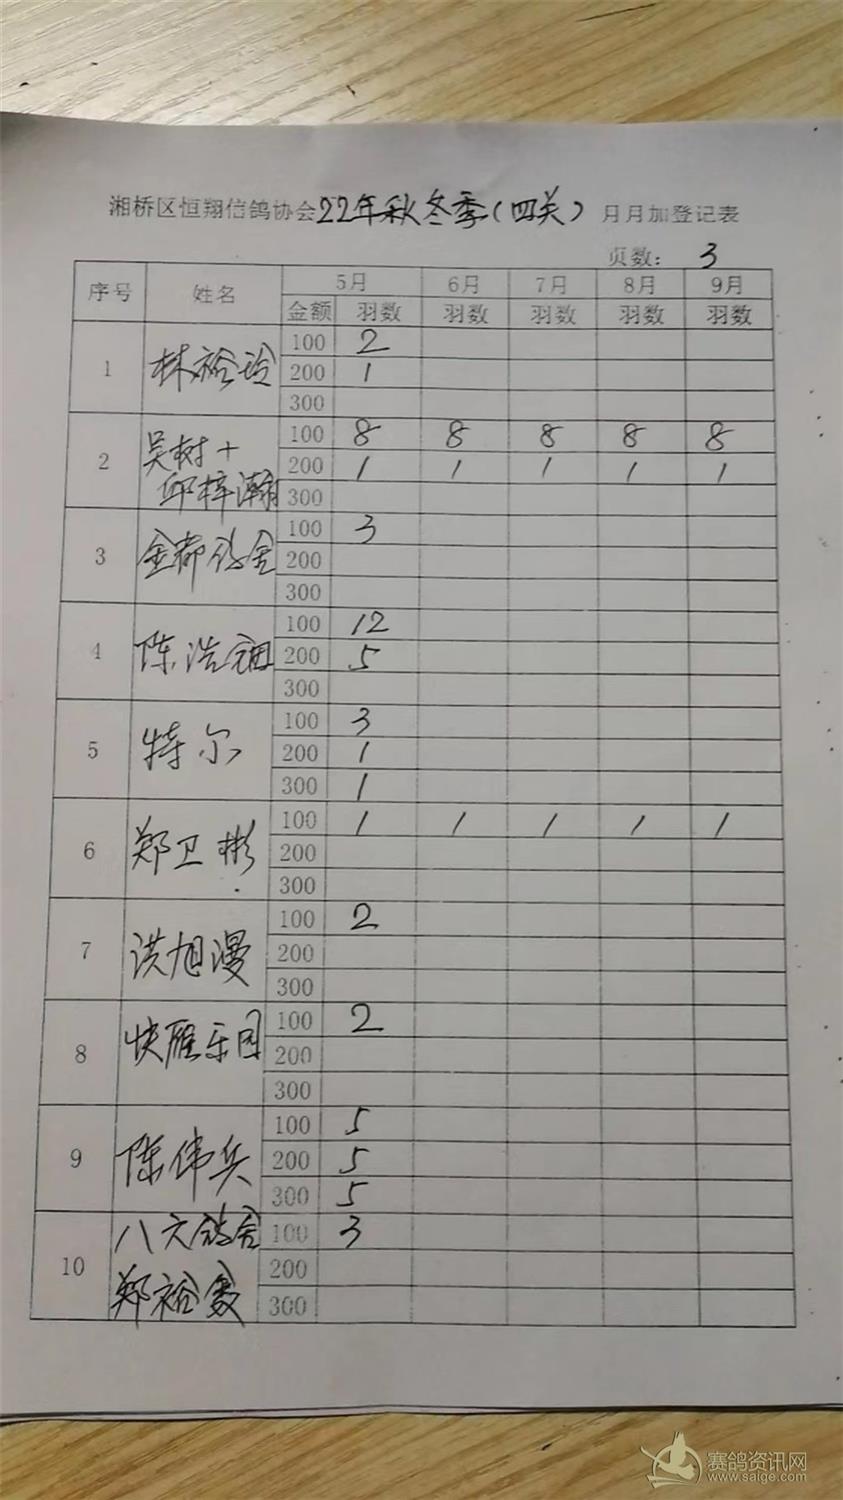 湘桥区恒翔信鸽协会22年秋冬季(四关) 月月加登记表
页数: 3
序号 姓名 5月 6月 7月 8月 9月
金额 羽数 羽数 羽数 羽数 羽数
1 林裕玲 100 2
200 1
300
2 吴树+ 100 8 8 8 8 8
邱梓瀚 200 1 1 1 1 1
300
3 金都鸽舍 100 3
200
300
4 陈浩 100 12
200 5
300
5 特尔 100 3
200 1
300 1
6 郑卫彬 100 1 1 1 1 1
200
300
7 洪旭漫 100 2
200
300
8 快雁乐园 100 2
200
300
9 陈伟兵 100 5
200 5
300 5
10 八六鸽舍 100 3
郑裕 200
300
赛鸽资讯网
www.saige.com